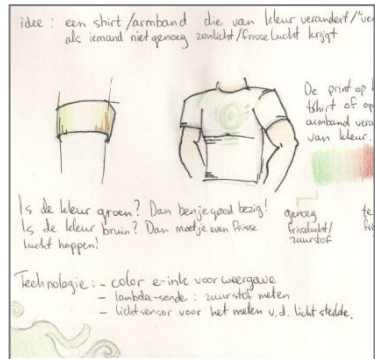 idee : een shirt/armband die van kleur verandert/"ve
als iemand niet genoeg zonlicht/frisse lucht krijgt
De print op
tshirt of op
armband vera
van kleur.
Is de kleur groen? Dan ben je goed bezig!
Is de kleur bruin? Dan moet je even frisse
lucht happen!
genoeg
frisse lucht/
zuurstof
te
fri
Technologie : - color e-ink voor weergave
- lambda-sonde : zuurstof meten
- lichtsensor voor het meten v.d. licht sterkte.